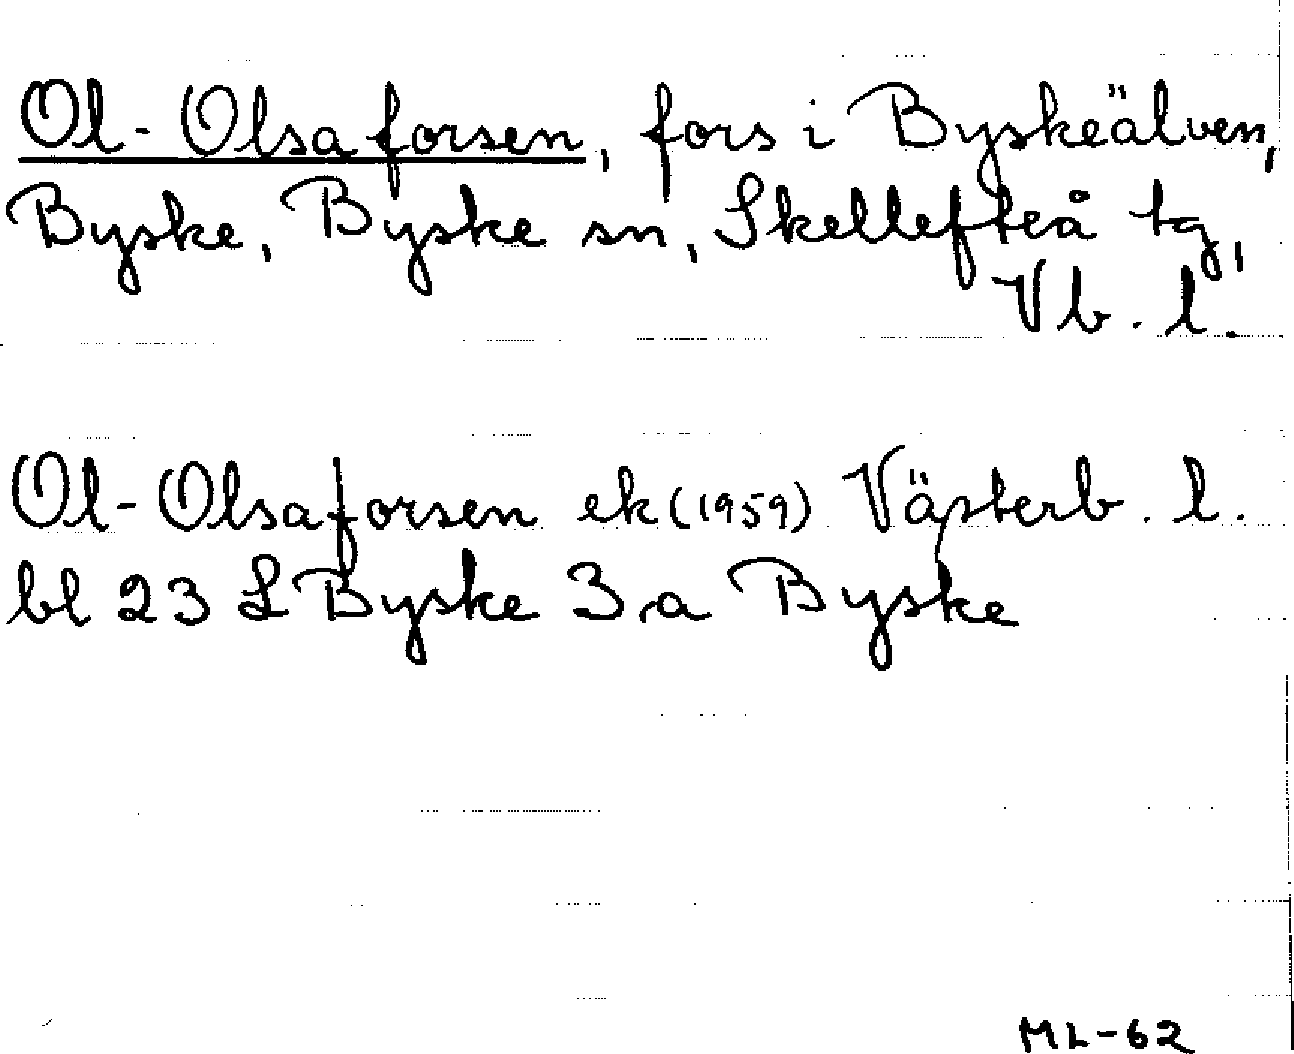 Ol-Olsaforsen, fors i Byskeälven,
Byske, Byske sn, Skellefteå tg,
Vb. l.
Ol-Olsaforsen ek (1959) Västerb. l.
bl 23 L Byske 3.a Byske
ML-62